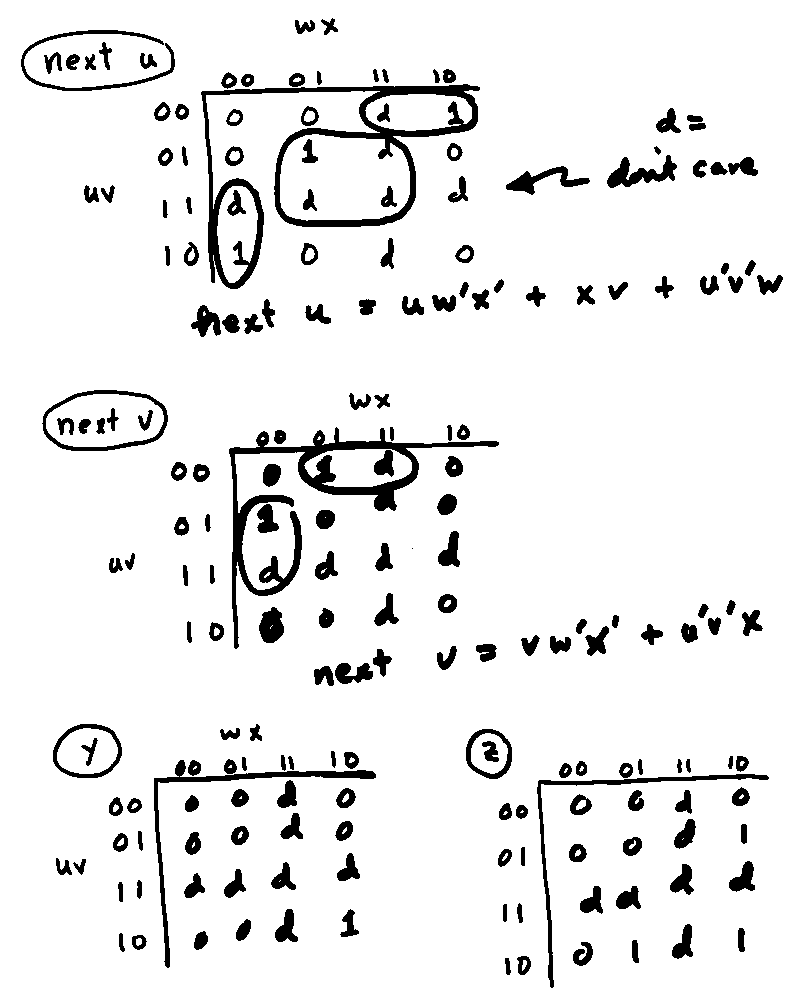 wx
next u
00 01 11 10
00 0 0 d 1
d =
01 0 1 d 0
don't care
uv
11 d d d d
10 1 0 d 0
next u = uw'x' + xv + u'v'w
wx
next v
00 01 11 10
00 0 1 d 0
01 1 0 d 0
uv
11 d d d d
10 0 0 d 0
next v = vw'x' + u'v'x
y
wx
00 01 11 10
00 0 0 d 0
01 0 0 d 0
uv
11 d d d d
10 0 0 d 1
z
00 01 11 10
00 0 0 d 0
01 0 0 d 1
11 d d d d
10 0 1 d 1